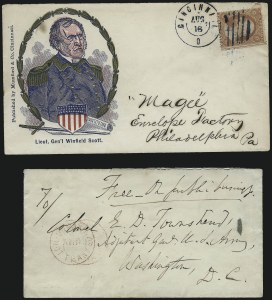 Published by Mumford & Co. Cincinnati.
Lieut. Gen'l Winfield Scott.
CINCINNATI
AUG
16
O
"Magee"
Envelope Factory
Philadelphia
Pa
Free - On public business
To/
Colonel E. D. Townsend,
Adjutant Gen'l U. S. Army,
Washington,
D. C.